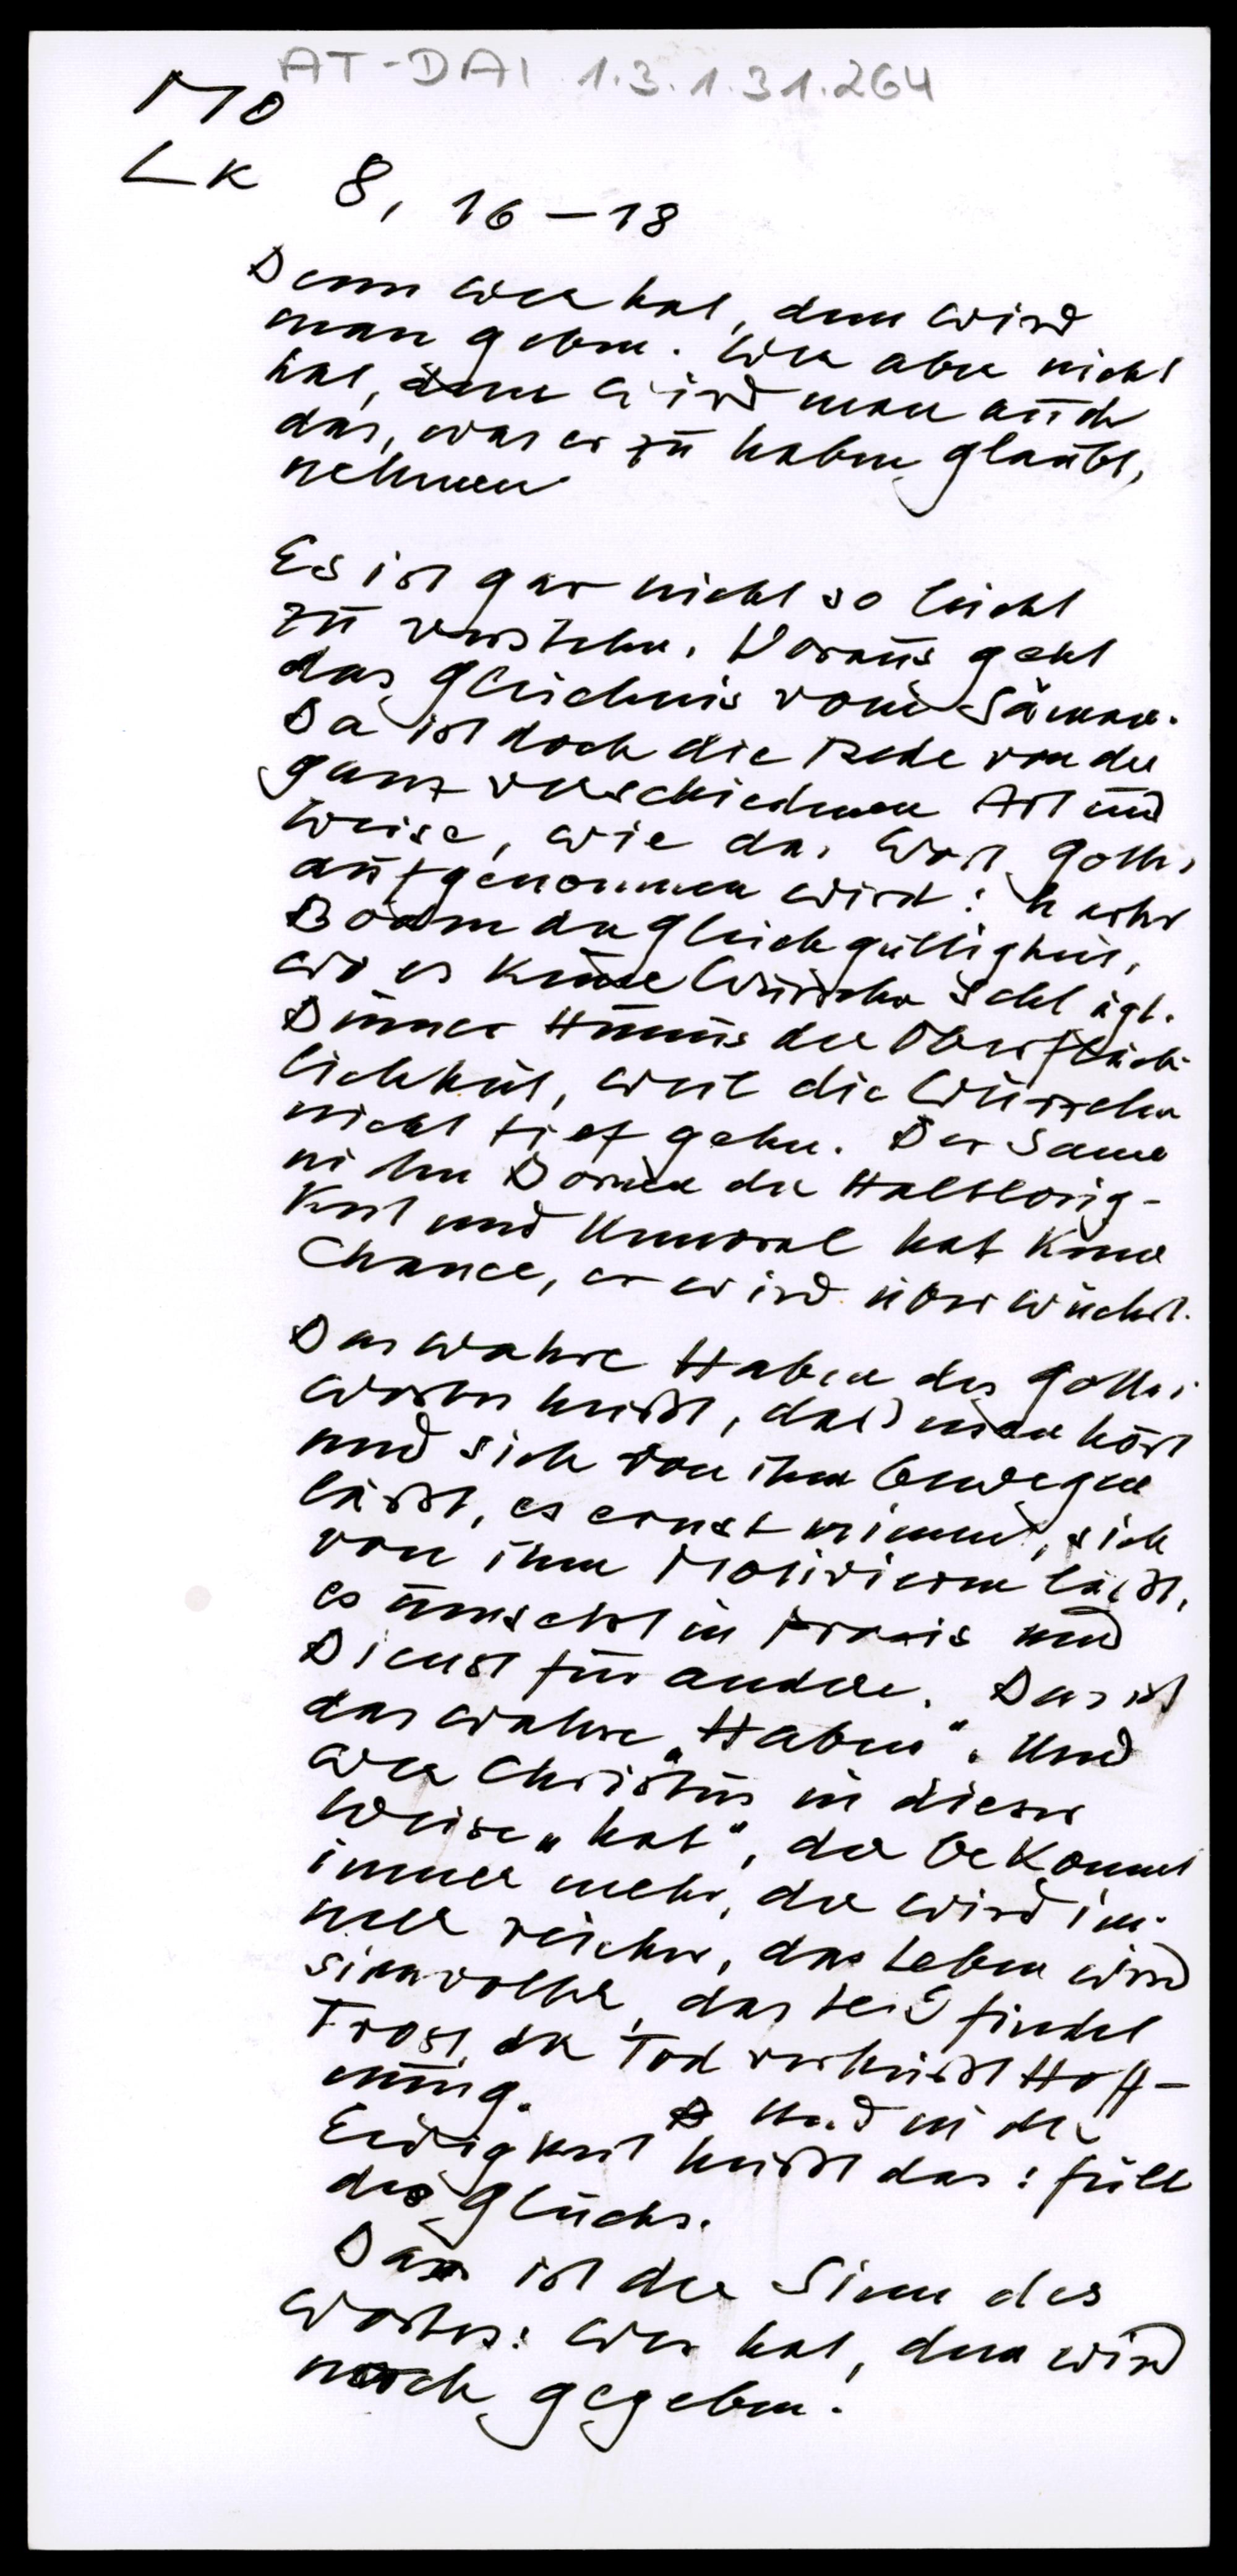 AT-DAI 1.3.1.31.264
Mo
Lk 8, 16-18
Denn wer hat, dem wird
man geben. Wer aber nicht
hat, dem wird man auch
das, was er zu haben glaubt,
nehmen
Es ist gar nicht so leicht
zu verstehn. Voraus geht
das Gleichnis vom Sämann.
Da ist doch die Rede von der
ganz verschiedenen Art und
Weise, wie das Wort Gottes
aufgenommen wird: harter
Boden der Gleichgültigkeit,
wo es keine Wurzeln schlägt.
Dünner Humus der Oberfläch-
lichkeit, weil die Wurzeln
nicht tief gehn. Der Same
in den Dornen der Haltlosig-
keit und Unmoral hat keine
Chance, er wird überwuchert.
Das wahre Haben des Gottes
Wortes heißt, daß man hört
und sich von ihm bewegen
läßt, es ernst nimmt, sich
von ihm motivieren läßt,
es umsetzt in Praxis und
Dienst für andere. Das ist
das wahre „Haben". Und
wer Christus in dieser
Weise „hat", der bekommt
immer mehr, der wird im-
mer reicher, das Leben wird
sinnvoller, das Leid findet
Trost, der Tod verheißt Hoff-
nung. Und in der
Ewigkeit heißt das: Fülle
des Glücks.
Das ist der Sinn des
Wortes: Wer hat, dem wird
noch gegeben.